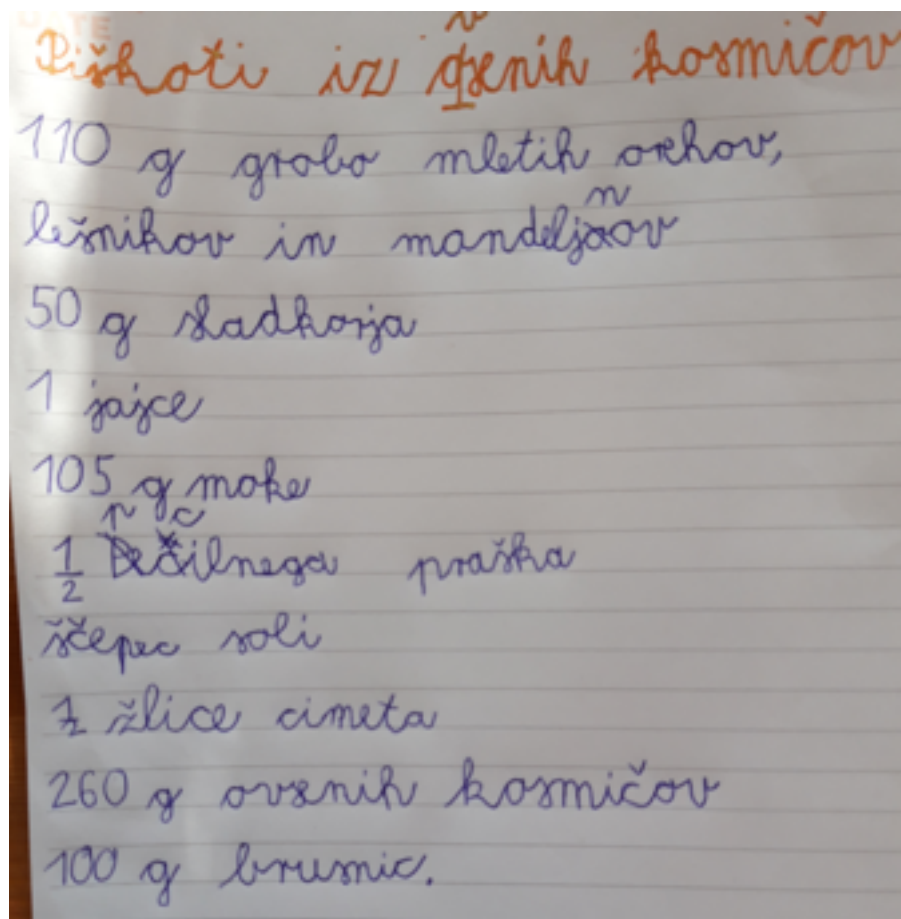 Piškoti iz ovsenih kosmičov
110 g grobo mletih orehov,
lešnikov in mandeljnov
50 g sladkorja
1 jajce
105 g moke
1/2 pecilnega praška
ščepec soli
1/2 žlice cimeta
260 g ovsenih kosmičov
100 g brusnic.